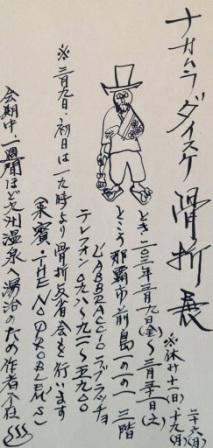 ナカムラダイスケ 骨折展
※休み十一(日)十九(月)
二十六(月)
とき 二〇一二年三月九日(金)〜三月三十一日(土)
ところ 那覇市前島一の一の一 二階
L'ABBRACCIO ラブラッチョ
テレフォン
※三月九日・初日は一九時より骨折反省会を行います
(来賓・THE NO PROBLEM'S)
会期中、一週間ほど九州温泉へ湯治のため作者不在